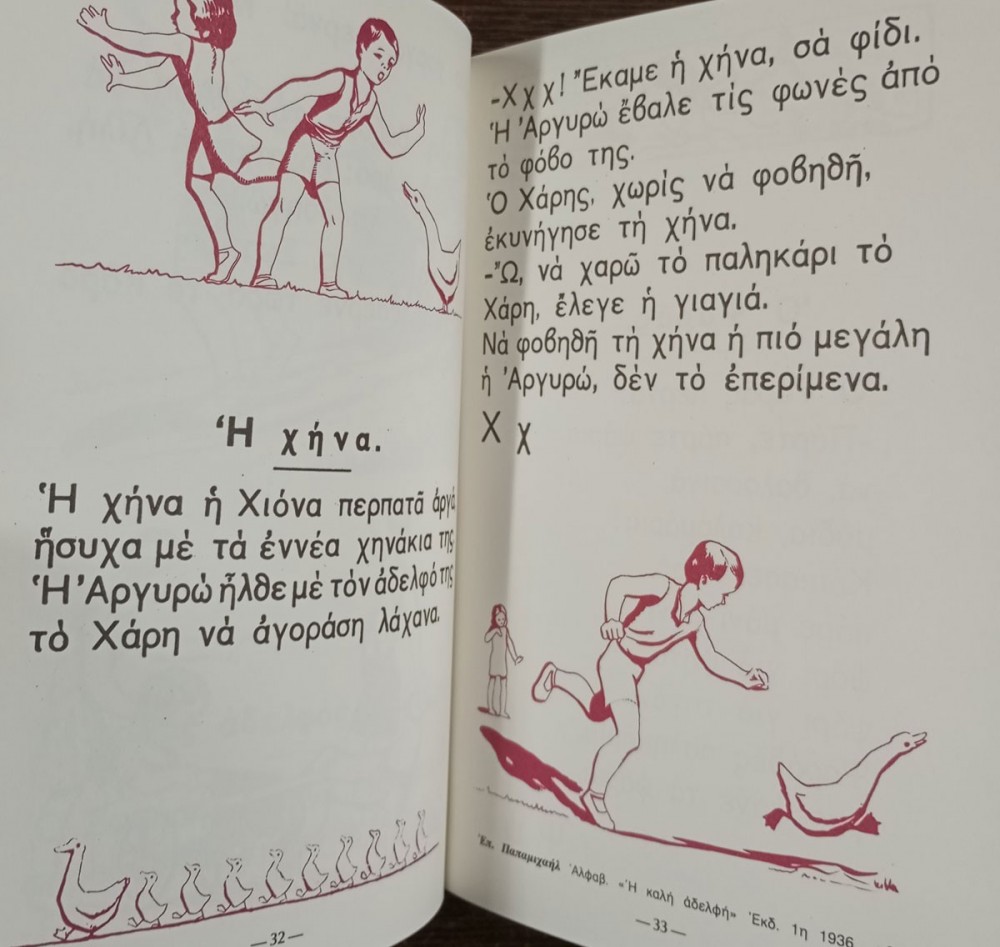 Ἡ χήνα.
Ἡ χήνα ἡ Χιόνα περπατᾶ ἀργά
ἥσυχα μὲ τὰ ἐννέα χηνάκια της
Ἡ Ἀργυρὼ ἦλθε μὲ τὸν ἀδελφό της
τὸ Χάρη νὰ ἀγοράση λάχανα.
—32—
-Χ χ χ! Ἔκαμε ἡ χήνα, σὰ φίδι.
Ἡ Ἀργυρὼ ἔβαλε τὶς φωνὲς ἀπὸ
τὸ φόβο της.
Ὁ Χάρης, χωρὶς νὰ φοβηθῆ,
ἐκυνήγησε τὴ χήνα.
-Ὤ, νὰ χαρῶ τὸ παληκάρι τὸ
Χάρη, ἔλεγε ἡ γιαγιά.
Νὰ φοβηθῆ τὴ χήνα ἡ πιό μεγάλη
ἡ Ἀργυρώ, δὲν τὸ ἐπερίμενα.
Χ χ
Ἐπ. Παπαμιχαὴλ Ἀλφαβ. «Ἡ καλὴ ἀδελφή» Ἐκδ. 1η 1936
—33—